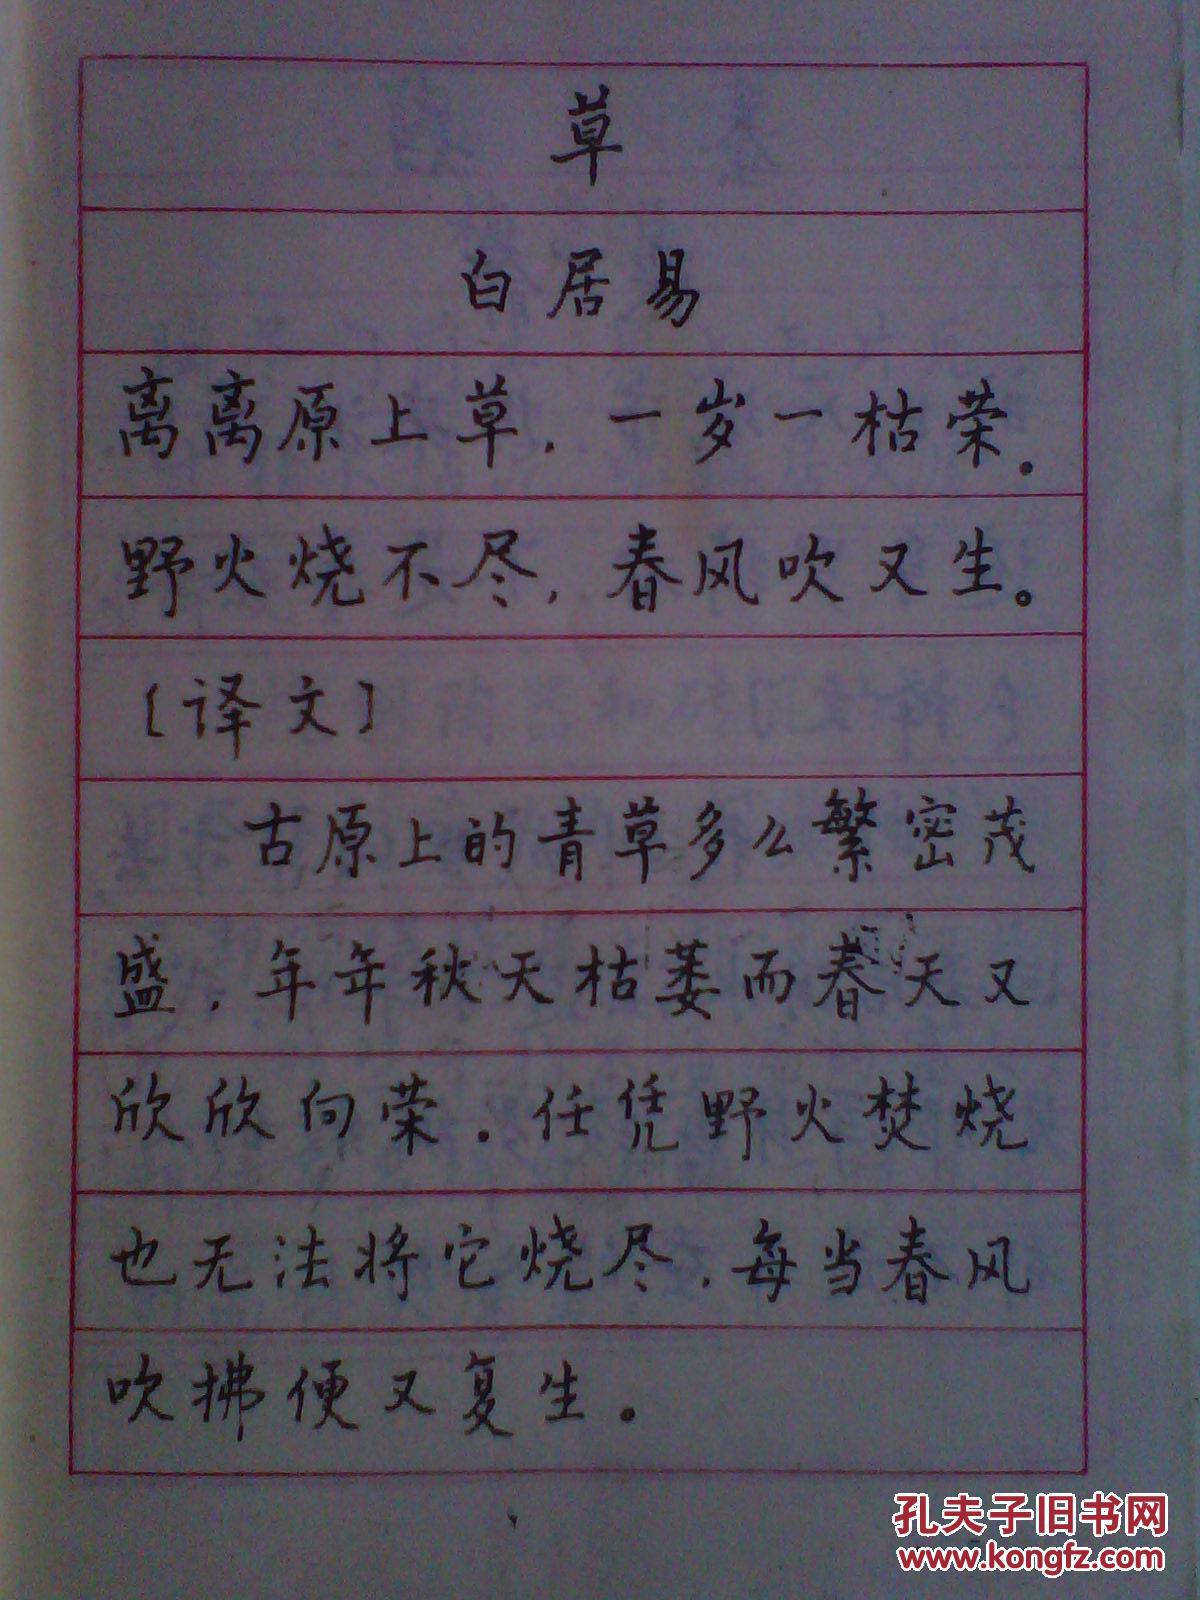 草
白居易
离离原上草，一岁一枯荣。
野火烧不尽，春风吹又生。
〔译文〕
古原上的青草多么繁密茂
盛，年年秋天枯萎而春天又
欣欣向荣。任凭野火焚烧
也无法将它烧尽，每当春风
吹拂便又复生。
孔夫子旧书网
www.kongfz.com